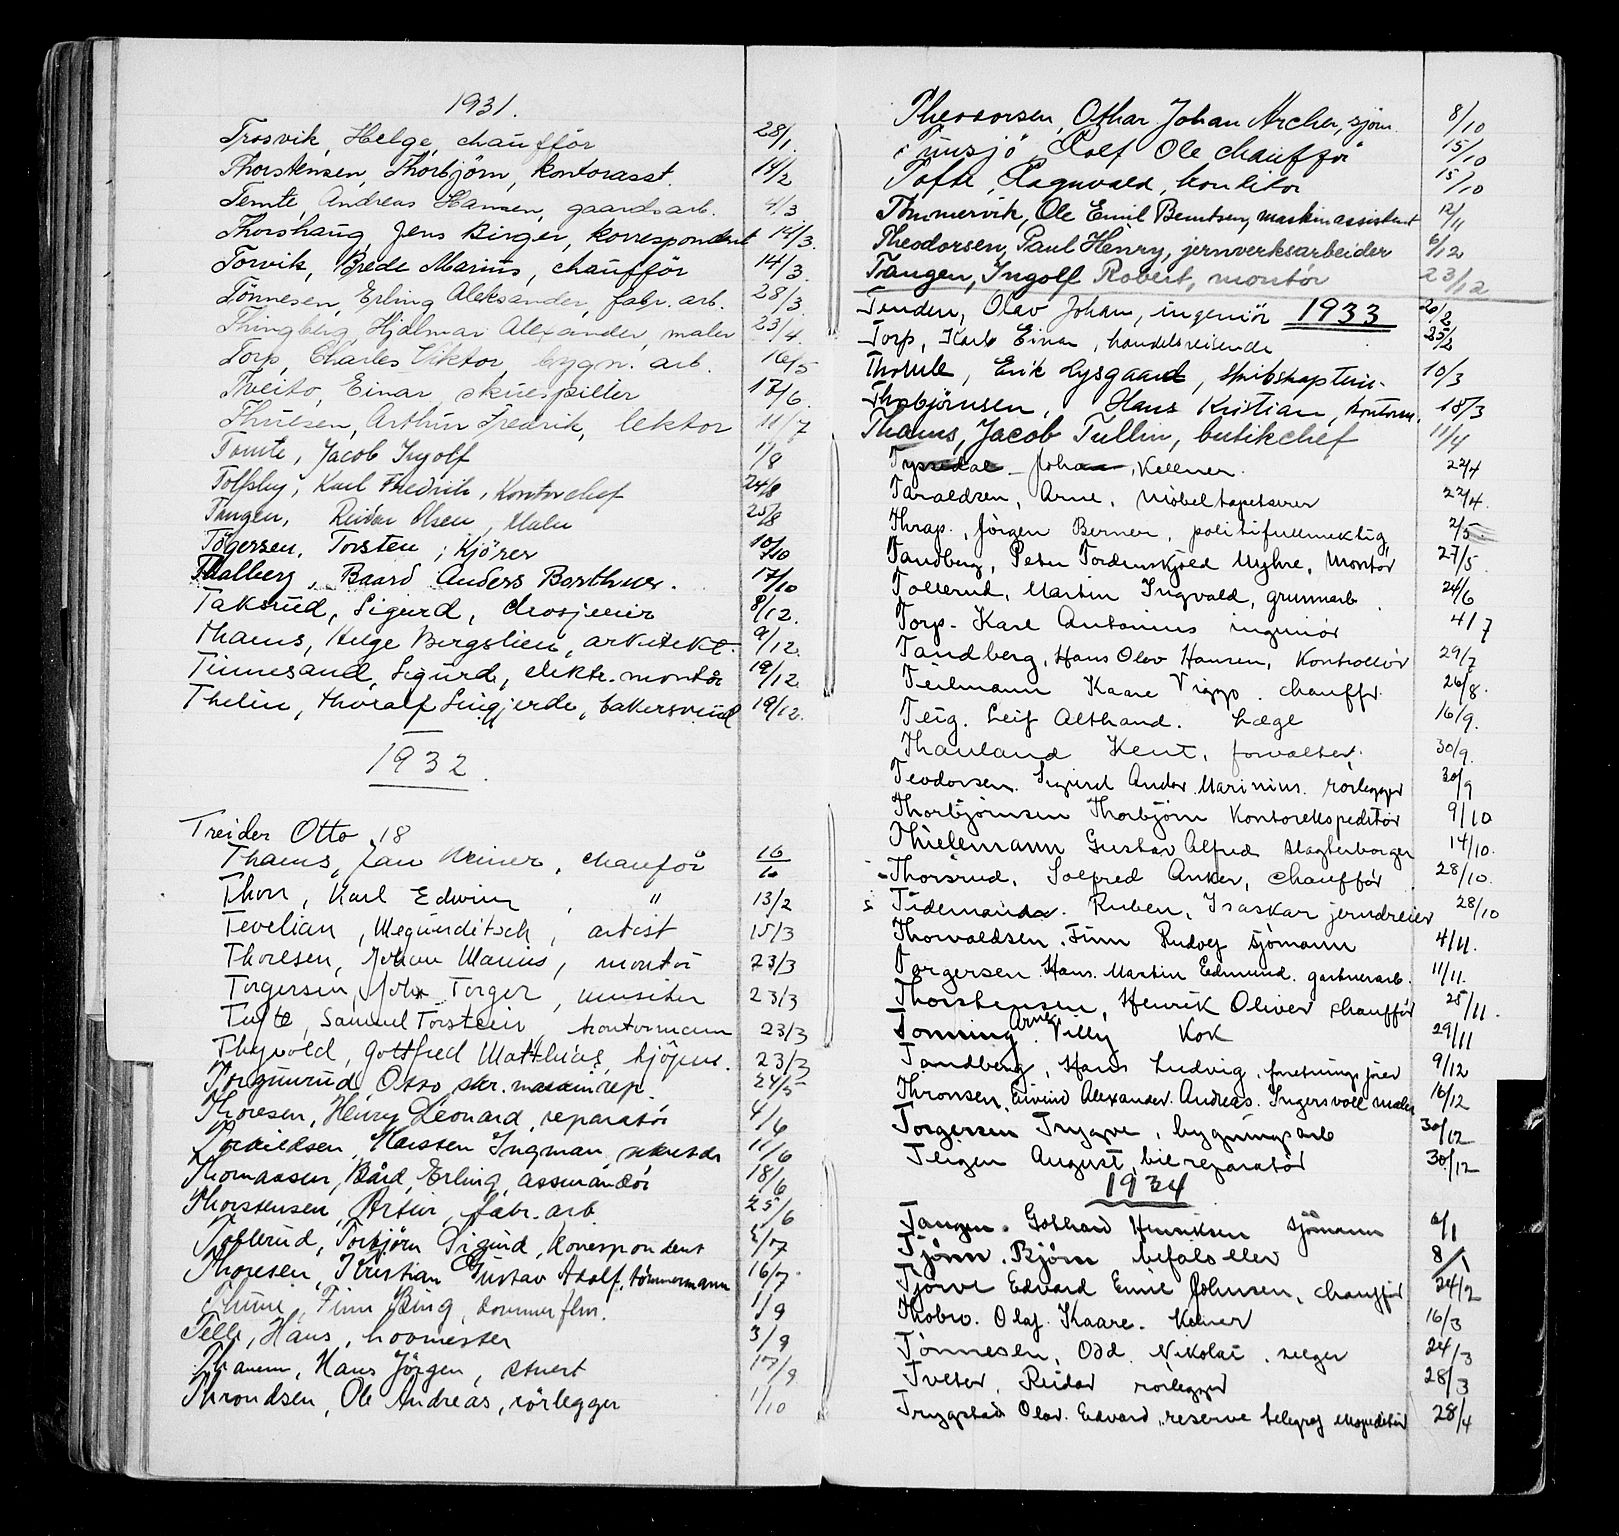 1931.
Trosvik, Helge, chaufför 28/1.
Thorstensen, Thorbjörn, kontorasst. 14/2
Temte, Andreas Hansen, gaardsarb. 4/3
Thorshaug, Jens Birger, korrespondent 14/3.
Torvik, Brede Marius, chaufför 14/3.
Tönnesen, Erling Aleksander, fabr. arb. 28/3.
Thingberg, Hjalmar Alexander, maler 23/4.
Torp, Charles Viktor, bygn. arb. 16/5
Tveito, Einar, skuespiller 17/6.
Thuesen, Arthur Fredrik, lektor 11/7
Tomte, Jacob Ingolf 1/8
Tolfsby, Karl Fredrik, Kontorchef 24/8
Tangen, Reidar Olsen, Maler 25/8
Tögersen, Torsten, Kjörer 10/10
Thalberg, Baard Anders Barthner. 17/10
Taksrud, Sigurd, drosjeeier 8/12.
Thams, Helge Bergslien, arkitekt. 9/12.
Tinnesand, Sigurd, elektr. montör 19/12.
Thelin, Thoralf Singjerde, bakersvend 19/12.
1932.
Treider Otto 18
Thams, Jan Reiner, chauför 16/
Thon, Karl Edwin, " 13/2
Tevelian, Meguirditsch, artist 15/3
Thoresen, Johan Marius, montör 23/3
Torgersen, John Torger, musiker 23/3
Tufte, Samuel Torstein, kontormann 23/3
Thyvold, Gottfred Matthias, kjöpm. 23/3
Torgunrud Otto, skr. maskinrep. 24/5
Thoresen, Henry Leonard, reparatör 4/6
Torkildsen, Karsten Ingman, 11/6
Thomassen, Bård, Erling, assurandör 18/6
Thorstensen, Artur, fabr. arb. 25/6
Tofterud, Torbjörn Sigurd, Korrespondent 5/7
Thoresen, Kristian Gustav Adolf, tömmermann 16/7.
Thune, Finn Bing, dommerflm. 1/9
Telle, Hans, hovmester 3/9
Thanem, Hans Jörgen, stuert 17/9
Throndsen, Ole Andreas, rörlegger 1/10
Theodorsen, Othar Johan Archer, sjöm. 8/10
Tunsjö, Rolf Ole chaufför 15/10
Tofte, Ragnvald, konditor 15/10
Thimervik, Ole Emil Berntsen, maskinassistent 12/11
Theodorsen, Paul Henry, jernverksarbeider 6/12
Tangen, Ingolf Robert, montör 23/12
Tenden, Olav Johan, ingeniör 1933 26/2
Torp, Karl Einar, handelsreisende 25/2
Thomle, Erik Lysgaard, skibskaptein. 10/3
Thorbjörnsen, Hans Kristian, kontorm. 18/3
Thams, Jacob Tullin, butikchef 11/4
Tyssedal Johan, Kellner. 22/4
Taraldsen, Arne, Möbeltapetserer 22/4.
Thrap, Jörgen Berner, politifullmektig 2/5
Tandberg, Peter Tordenskjold Myhre, Montör 27/5.
Tollerud, Martin Ingvald, grunnarb. 24/6
Torp, Karl Antonius ingeniör 4/7
Tandberg, Hans Olav Hansen, Kontrollör 29/7
Teilmann Kaare Viggo. chauffr. 26/8.
Teig. Leif Althand. Læge 16/9.
Thauland Kent, forvalter. 30/9.
Teodorsen. Sigurd Andor Marinius. rörlegger 30/9
Thorbjörnsen Thorbjörn Kontorekspeditör 9/10
Thielemann Gustav Alfred slagterborger 14/10.
Thorsrud, Solfred Anker, chaufför 28/10.
Tidemand. Ruben, Isaskar jerndreier 28/10
Thorvaldsen. Finn Rudolf sjömann 4/11.
Torgersen Hans. Martin Edmund. gartnerarb. 11/11.
Thorstensen, Henrik Oliver chaufför 25/11.
Tonning Arne. Villy Kok 29/11
Tandberg, Hans Ludvig, forretningsförer 9/12
Thronsen, Eivind Alexander Andreas. Ingersvoll maler 16/12
Torgersen Trygve, bygningsarb 30/12
Teigen August, bilreparatör 30/12
1934
Tangen. Gothard Henriksen sjömann 6/1
Tjönn. Björn befalselev 8/1
Tjörve Edvard Emil Johnsen, chaufför 24/2
Thobro. Olaf. Kaare. Kelner 16/3
Tönnesen, Odd. Nikolai. selger 24/3
Tveter, Reidar rörlegger 28/3
Trygstad Olav. Edvard, reserve telegraf ekspeditör 28/4